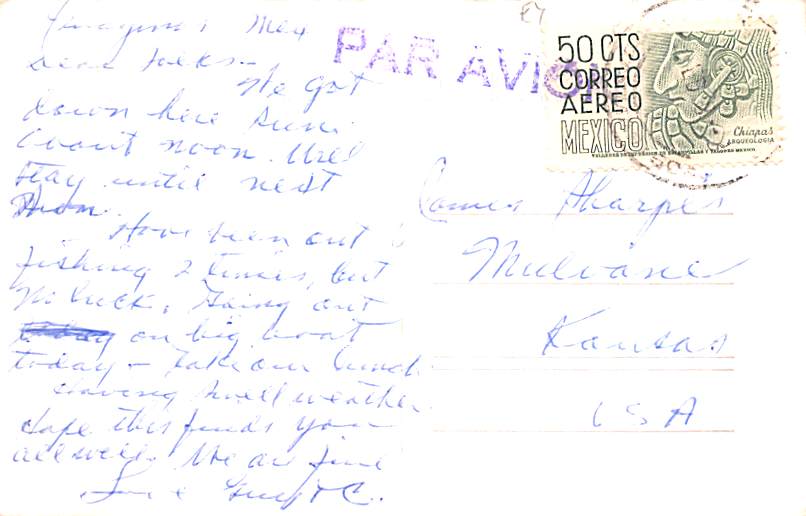 Mex
Dear Folks—
We got
down here Sun.
about noon. Will
stay until next
Have been out
fishing 2 times, but
no luck. Going out
on big boat
today — take our lunch
Having swell weather
Hope this finds you
all well. We are fine
Love
PAR AVION
50 CTS
CORREO
AEREO
MEXICO
Chiapas
ARQUEOLOGIA
Sharpes
Mulvane
Kansas
USA